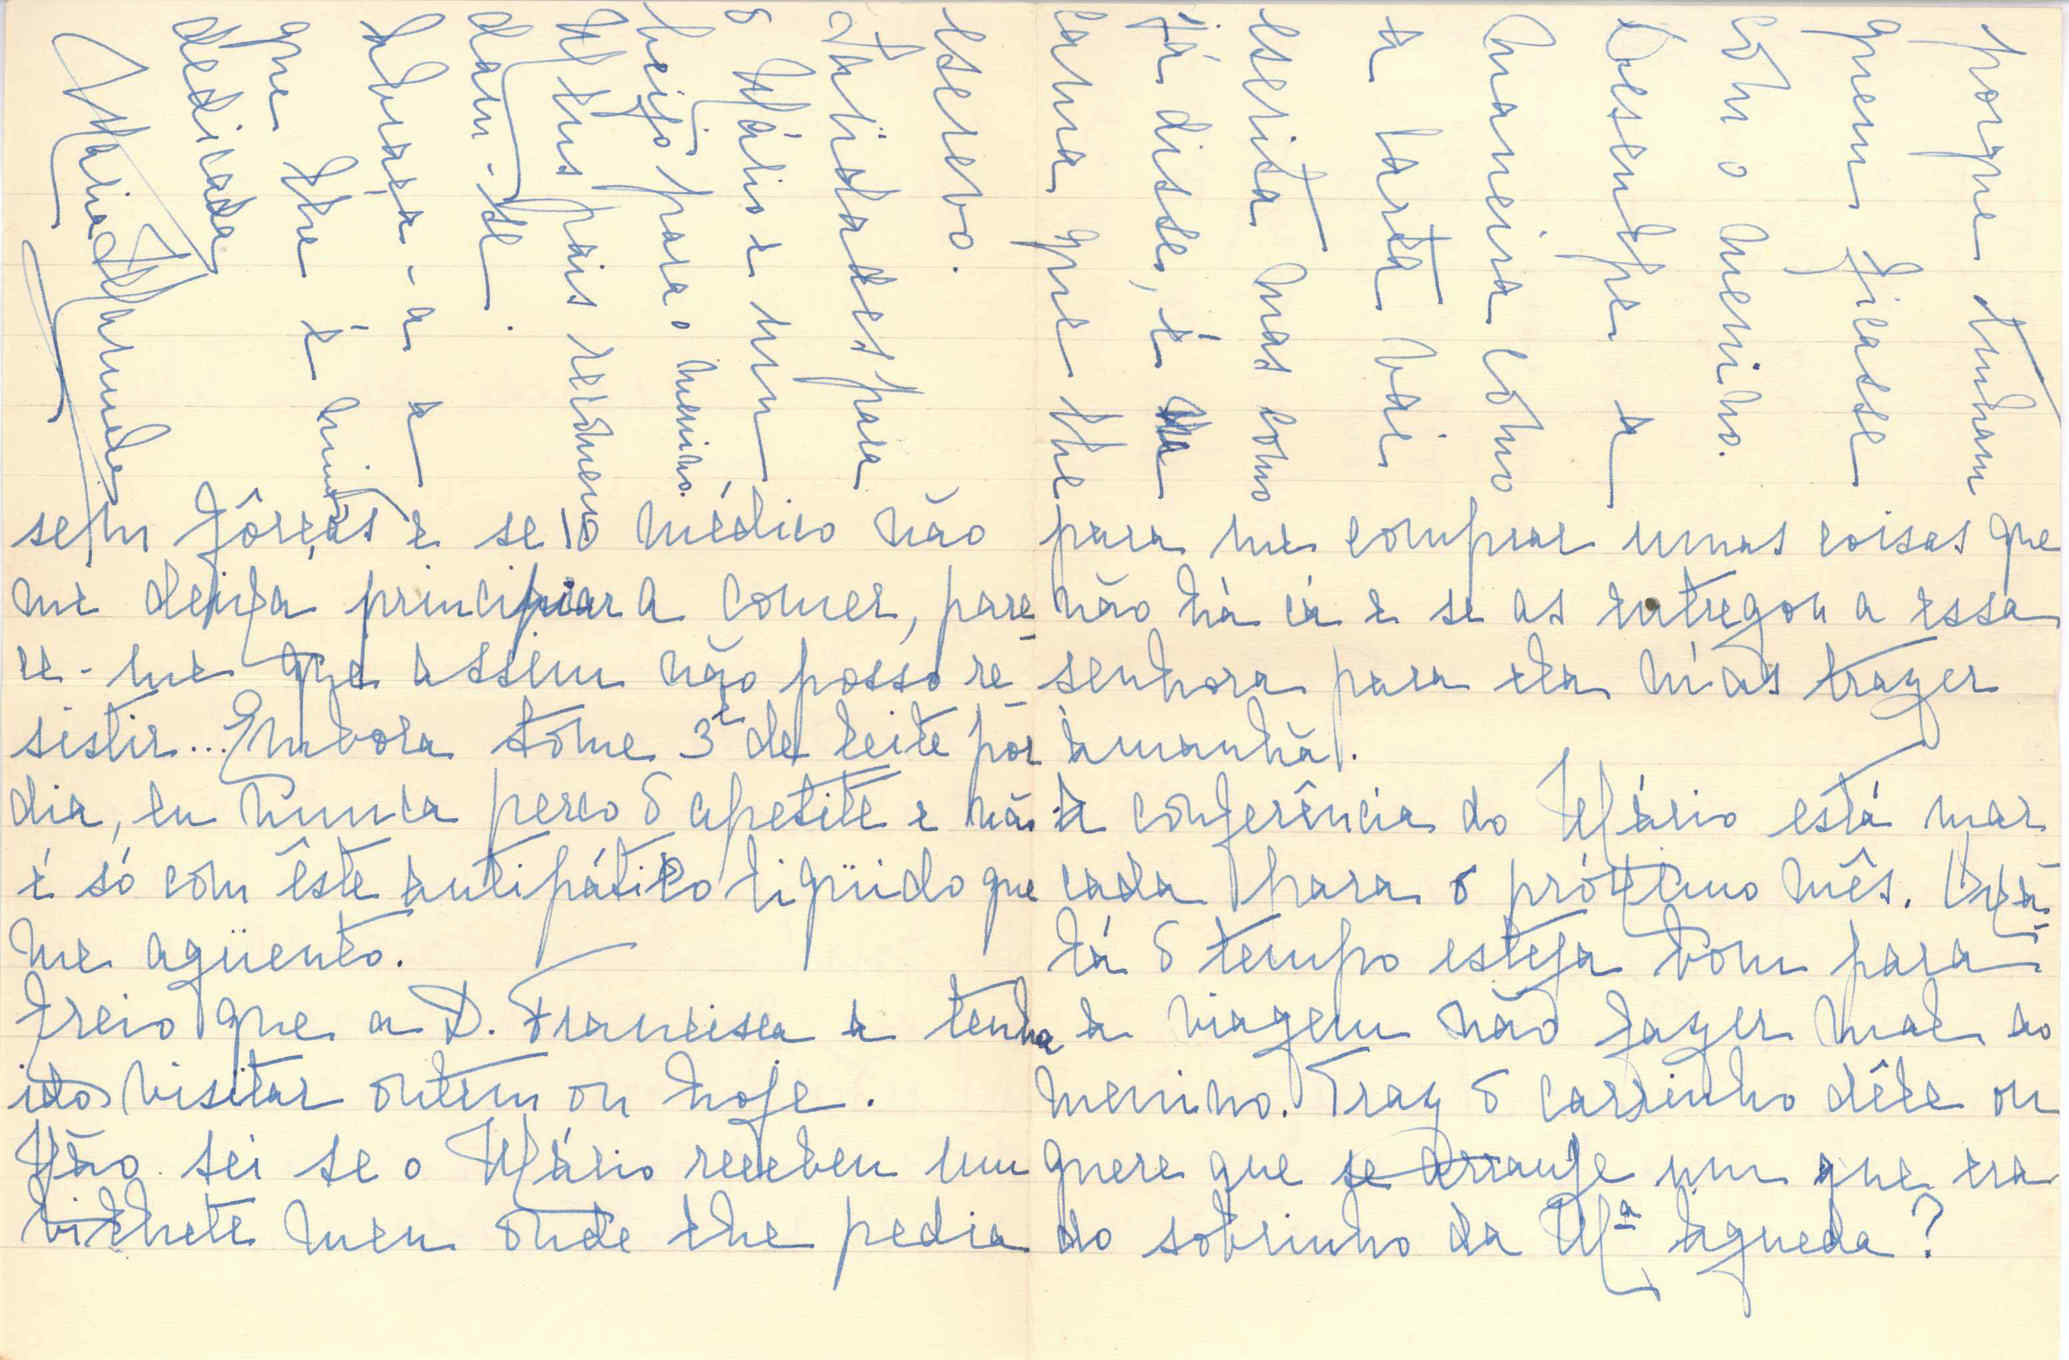 sem fôrças e se o médico não
me deixa principiar a comer, pare
ce-me que assim não posso re-
sistir... Embora tome 3 de leite por
dia, eu nunca perco o apetite e não
é só com êste antipático liqüido que
me agüento.
Creio que a D. Francisca a tenha
ido visitar ontem ou hoje.
Não sei se o Mário recebeu um
bilhete meu onde lhe pedia
para me comprar umas coisas que
não há cá e se as entregou a essa
senhora para ela m'as trazer
àmanhã.
A conferência do Mário está mar
cada para o próximo mês. Oxa
lá o tempo esteja bom para
a viagem não fazer mal ao
menino. Traz o carrinho dêle ou
quere que se arranje um que era
do sobrinho da Mª Águeda?
porque tinham
quem ficasse
com o menino.
Desculpe a
maneira como
a carta vai
escrita mas como
já disse, é na
cama que lhe
escrevo.
Saüdades para
o Mário e um
beijo para o menino.
Meus pais recomen
dam-se.
Abraça-a a
que lhe é muito
dedicada
Maria